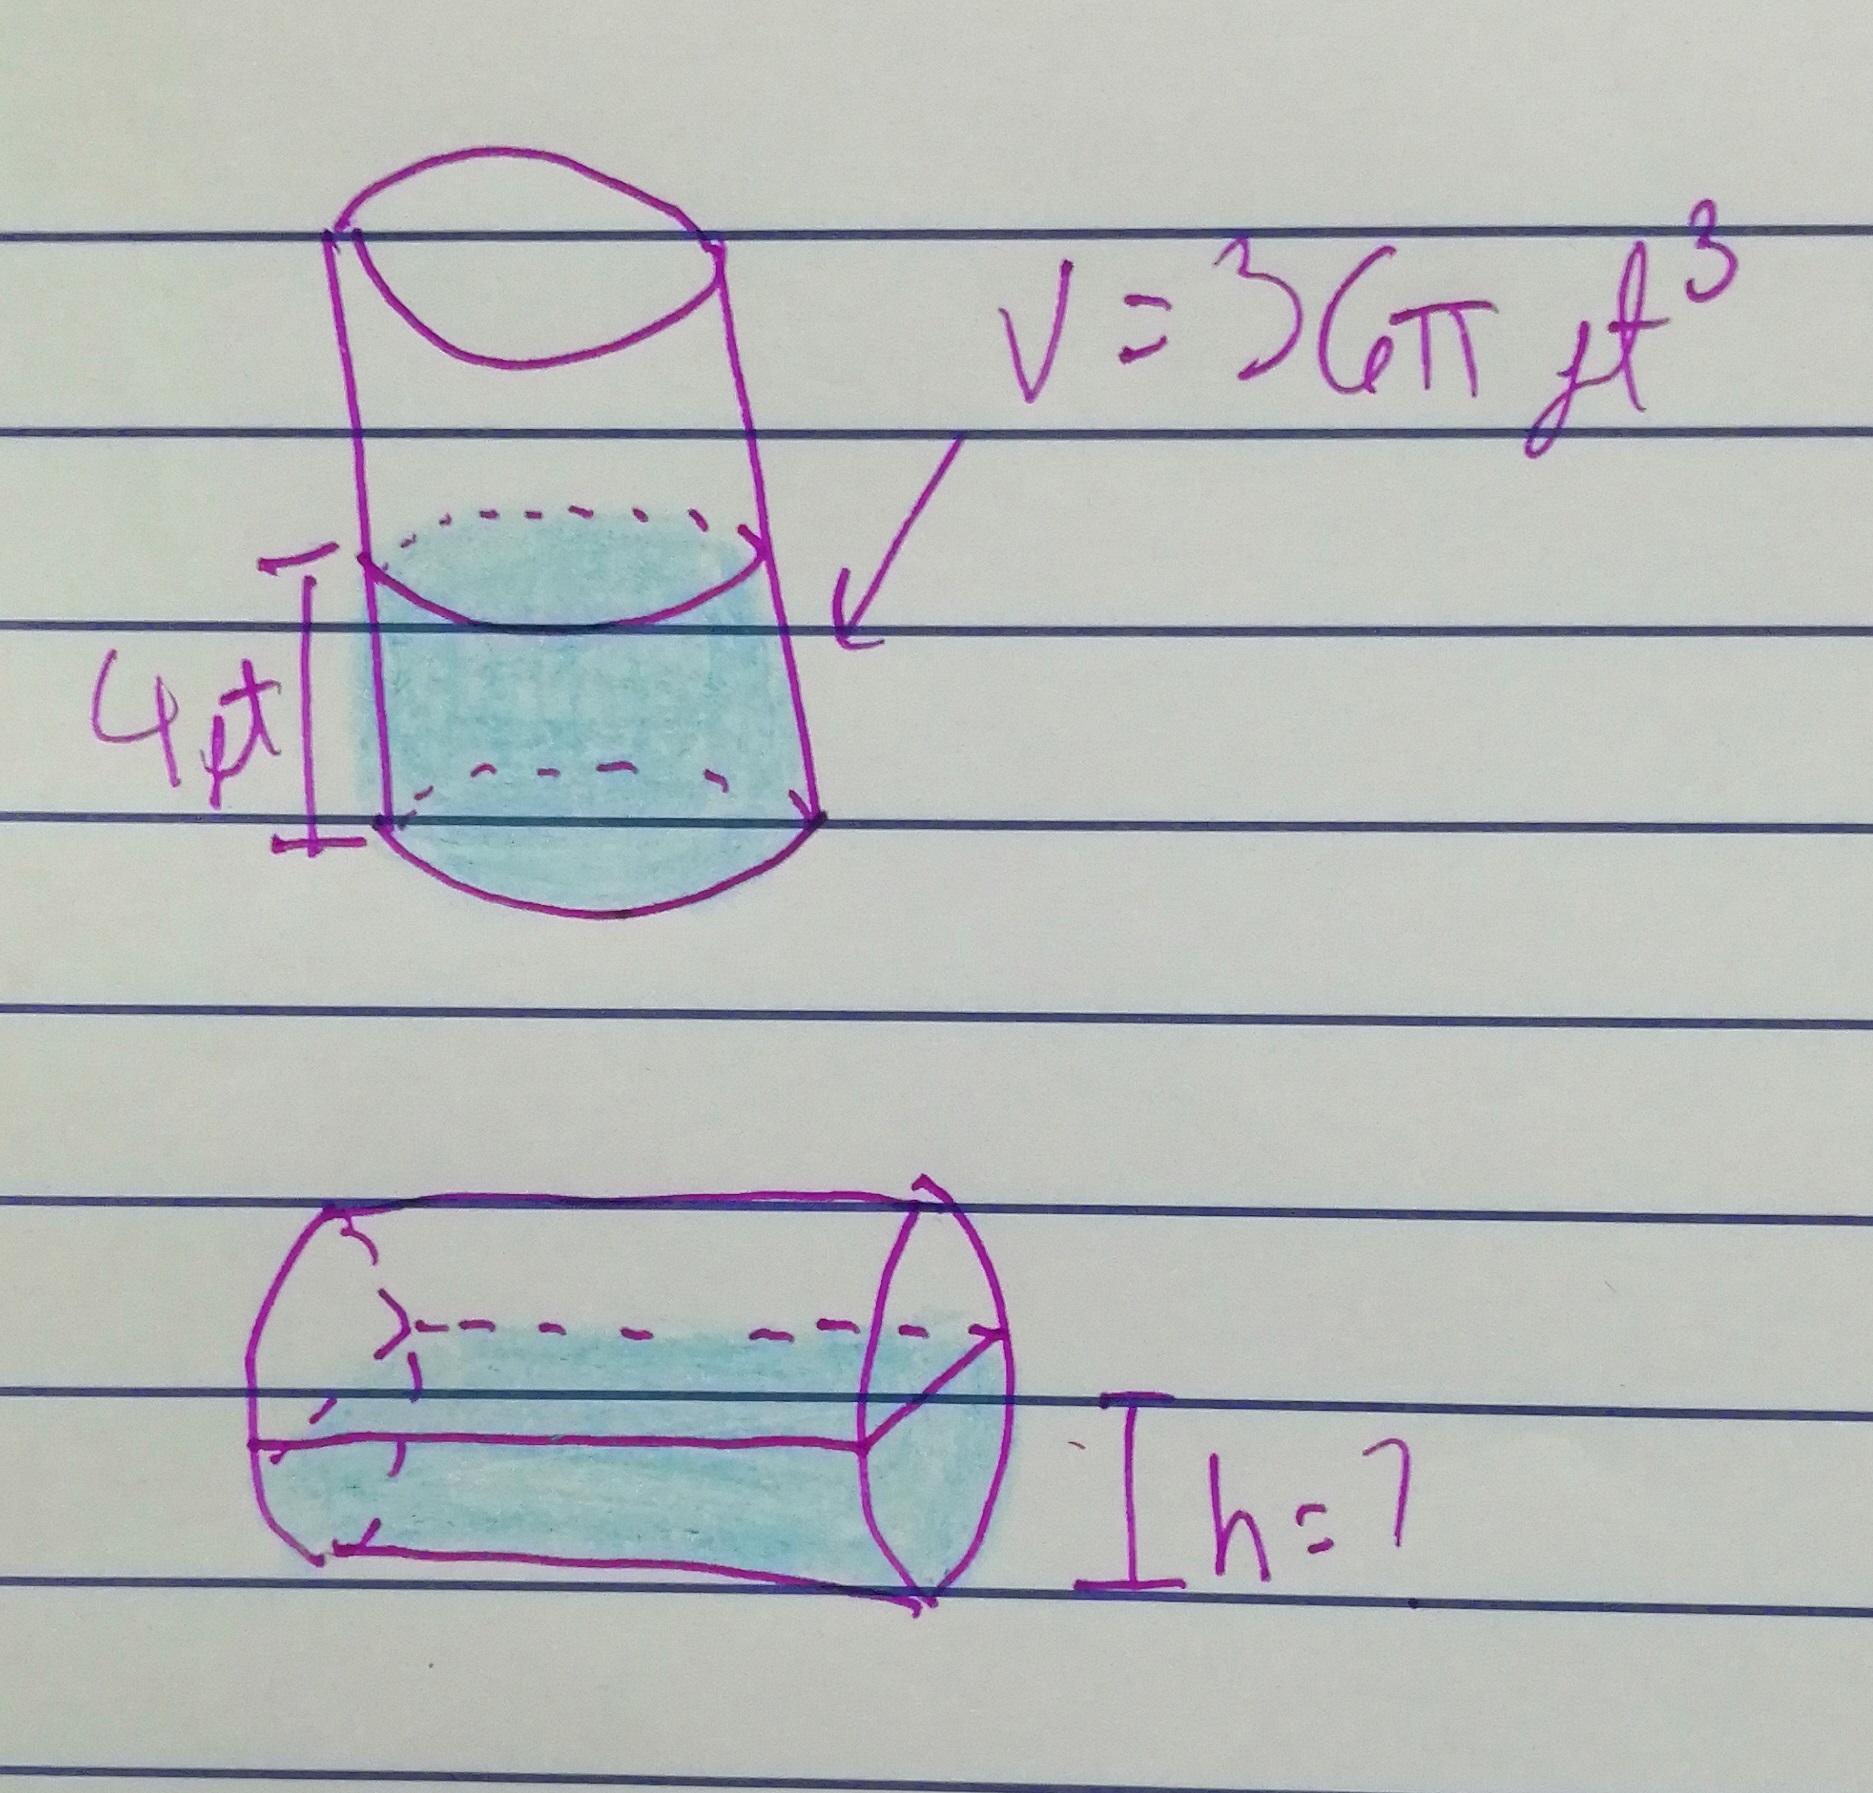 V = 36π ft³
4 ft
h = ?